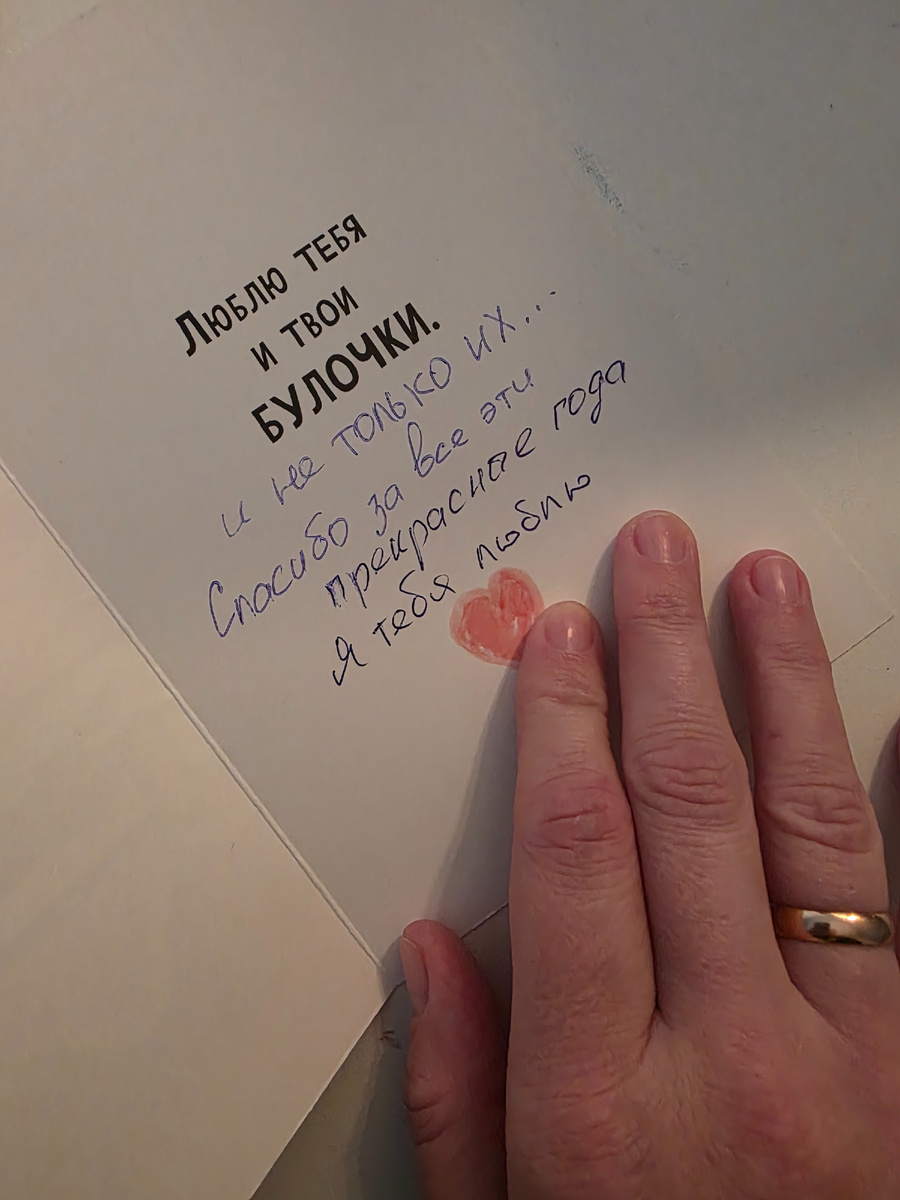 Люблю тебя
и твои
булочки.
и не только их...
Спасибо за все эти
прекрасные года
Я тебя люблю